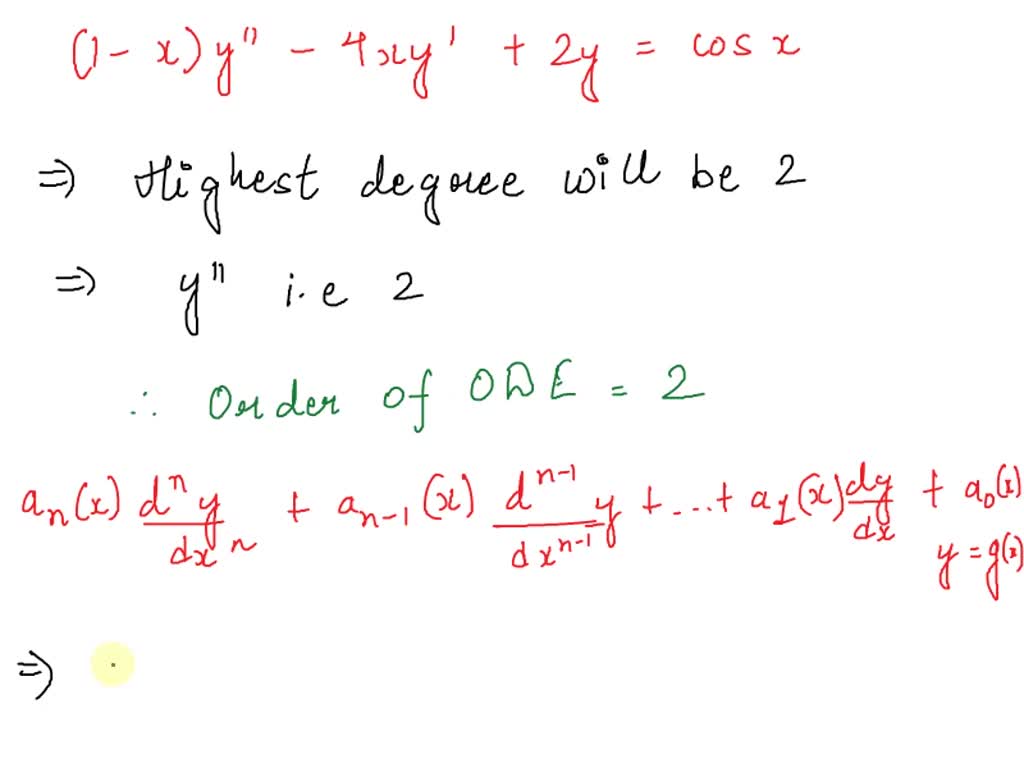 (1 - x) y'' - 4xy' + 2y = cos x
⇒ Highest degree will be 2
⇒ y'' i.e 2
∴ Order of ODE = 2
aₙ(x) dⁿy/dxⁿ + aₙ₋₁(x) dⁿ⁻¹y/dxⁿ⁻¹ + ... + a₁(x) dy/dx + a₀(x)
y = g(x)
⇒